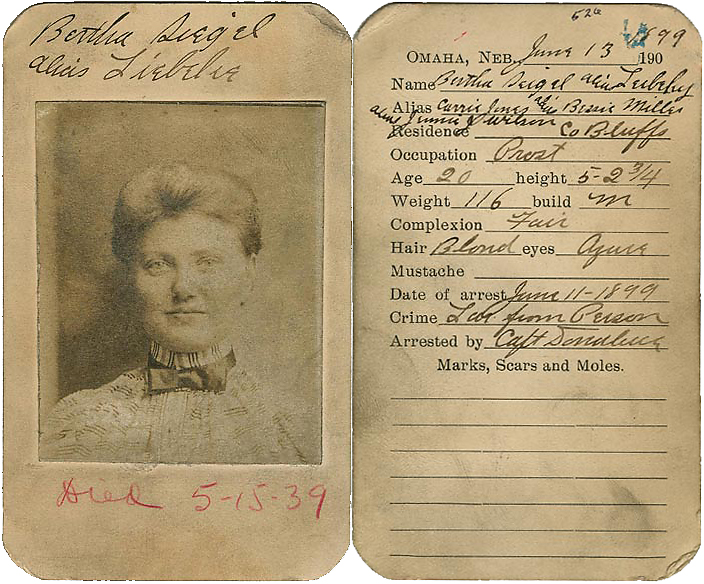 Bertha Siegel
alias Liebelie
Died 5-15-39
526
OMAHA, NEB. June 13 1899 190
Name Bertha Seigel alias Liebeby
Alias Carrie Jones alias Bessie Miller
alias Jennie Wilson
Residence Co Bluffs
Occupation Prost
Age 20 height 5-2 3/4
Weight 116 build m
Complexion Fair
Hair Blond eyes Azure
Mustache
Date of arrest June 11-1899
Crime Lar. from Person
Arrested by Capt Donahue
Marks, Scars and Moles.